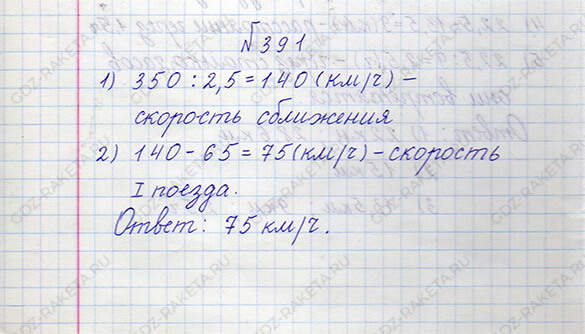 №391
1) 350 : 2,5 = 140 (км/ч) –
скорость сближения
2) 140 – 65 = 75 (км/ч) – скорость
I поезда.
Ответ: 75 км/ч.
GDZ-RAKETA.RU